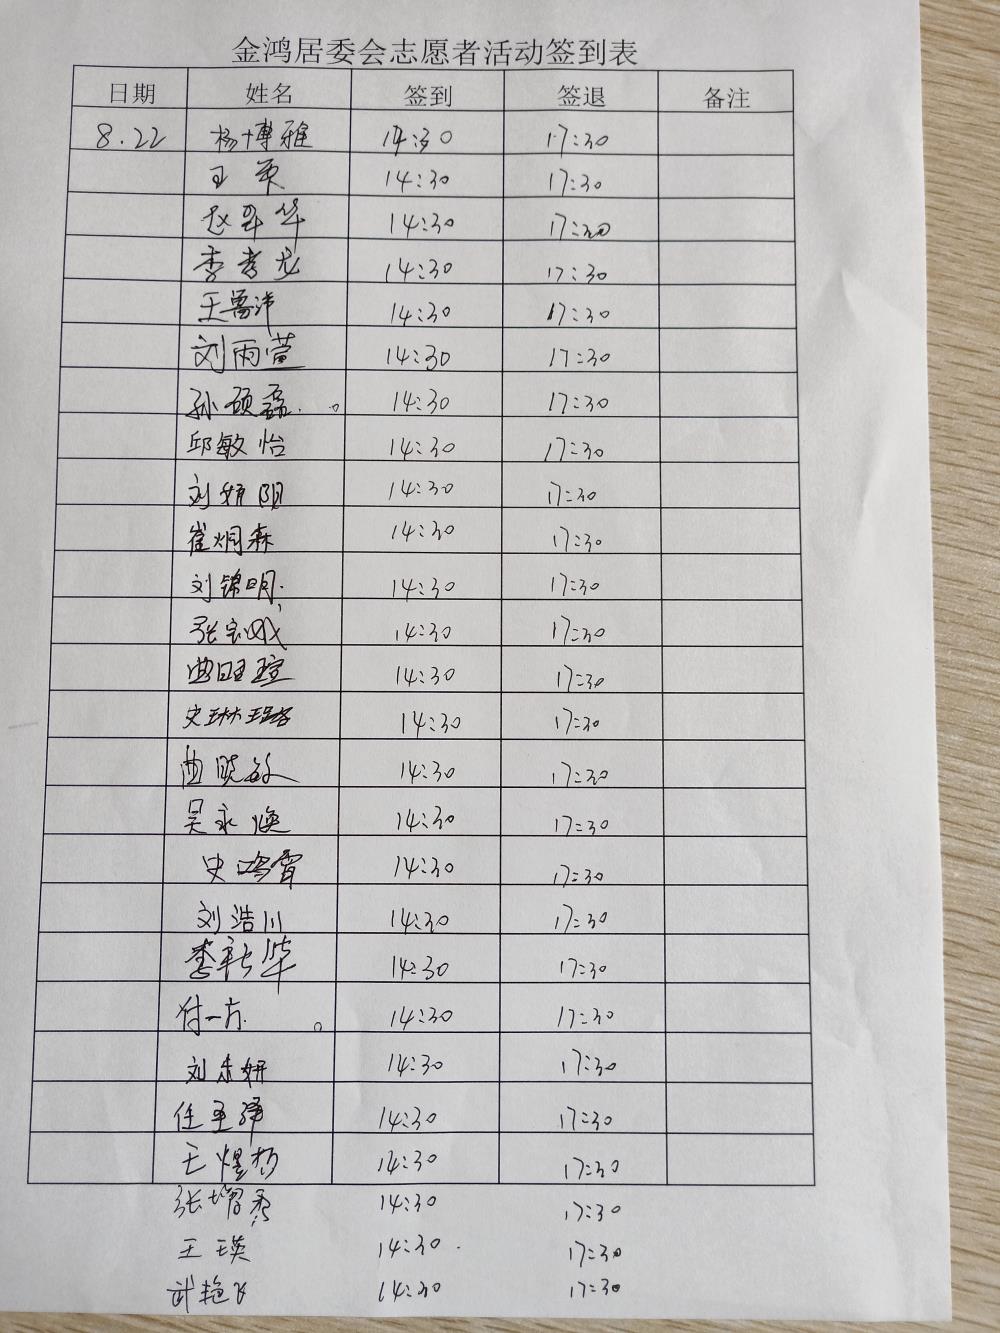 金鸿居委会志愿者活动签到表
日期 姓名 签到 签退 备注
8.22 杨博雅 14:30 17:30
王英 14:30 17:30
赵翠华 14:30 17:30
李孝龙 14:30 17:30
王露沛 14:30 17:30
刘雨萱 14:30 17:30
孙硕磊 14:30 17:30
邱敏怡 14:30 17:30
刘娟阳 14:30 17:30
崔炯森 14:30 17:30
刘锦明 14:30 17:30
张宝 14:30 17:30
曲旺瑄 14:30 17:30
史琳珺 14:30 17:30
曲晓敏 14:30 17:30
吴永焕 14:30 17:30
史鸿霄 14:30 17:30
刘浩川 14:30 17:30
李新华 14:30 17:30
付一方 14:30 17:30
刘东妍 14:30 17:30
任亚泽 14:30 17:30
王煜 14:30 17:30
张增秀 14:30 17:30
王瑛 14:30 17:30
武艳飞 14:30 17:30